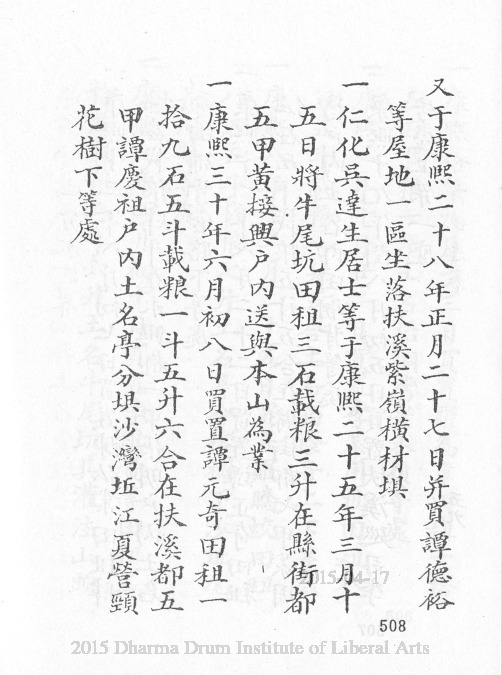 又于康熙二十八年正月二十七日并買譚德裕
等屋地一區坐落扶溪紫嶺橫材埧
一仁化吳達生居士等于康熙二十五年三月十
五日將牛尾坑田租三石載粮三升在縣街都
五甲黃接興戶内送與本山為業
一康熙三十年六月初八日買置譚元奇田租一
拾九石五斗載粮一斗五升六合在扶溪都五
甲譚慶祖戶内土名亭分埧沙灣坵江夏營頸
花樹下等處
2015-04-17
508
2015 Dharma Drum Institute of Liberal Arts